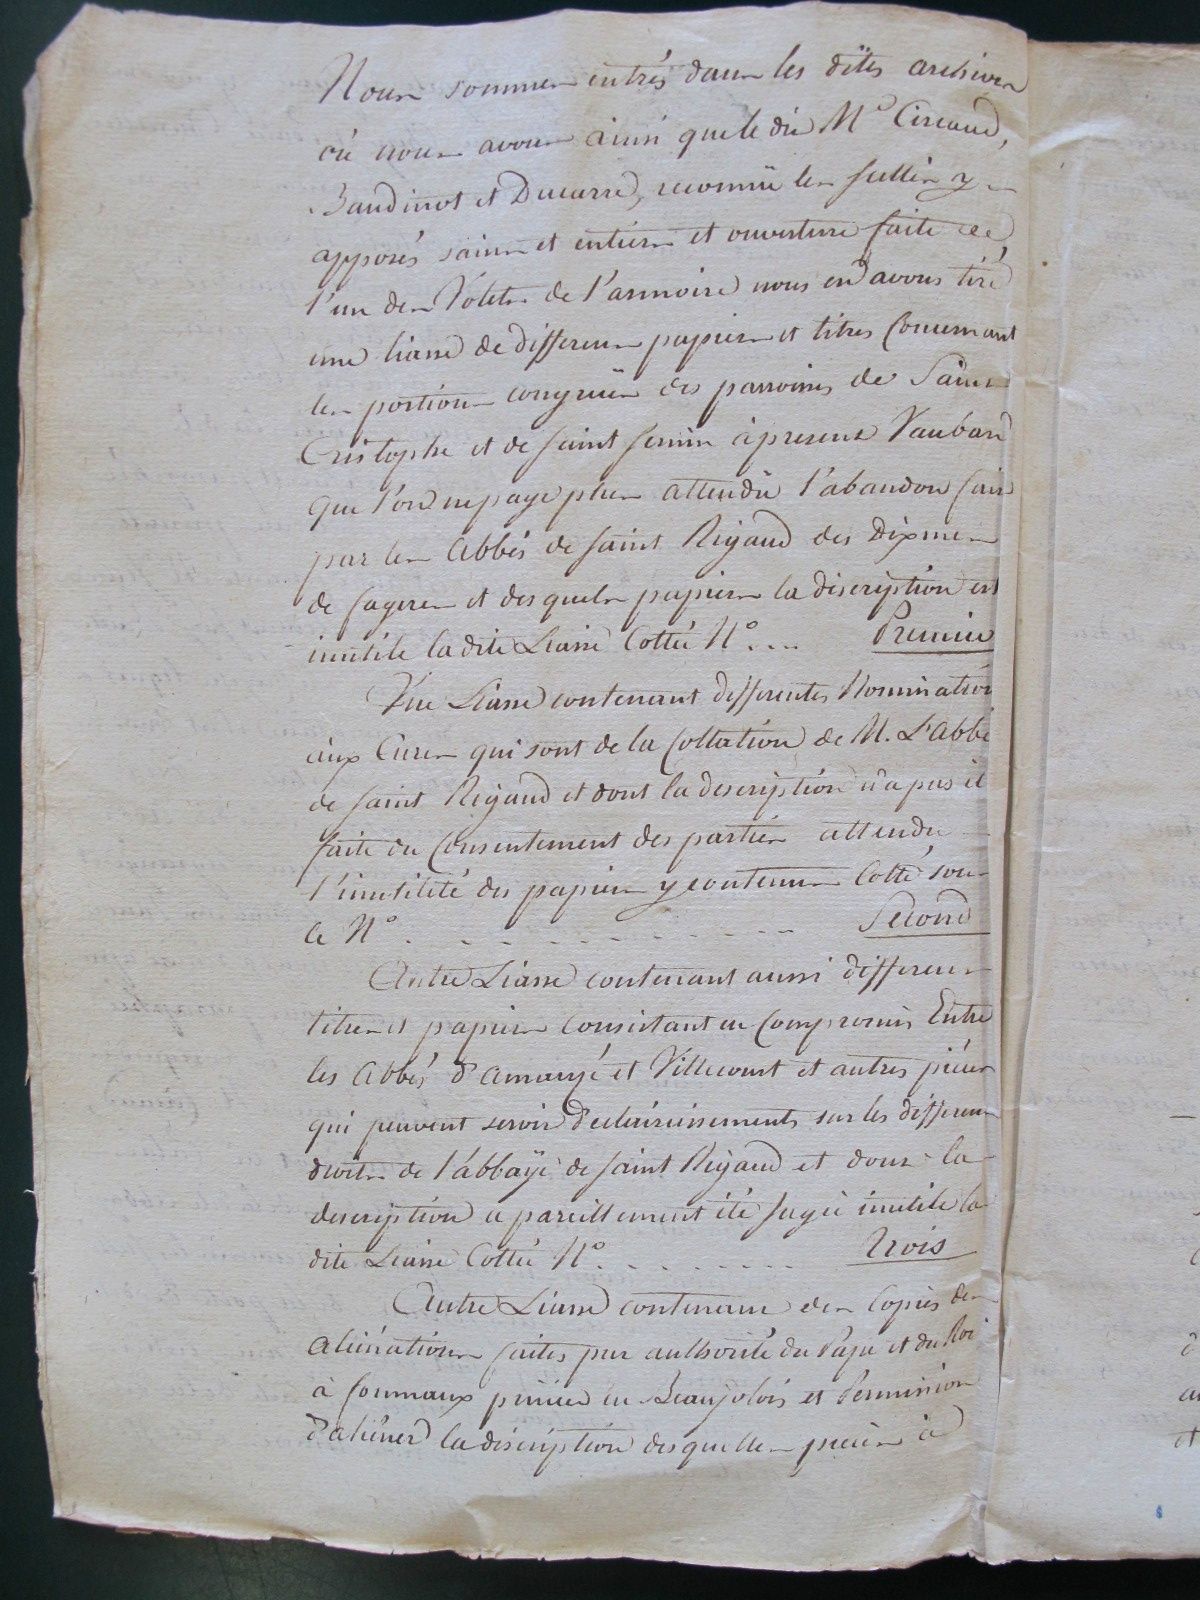 Nous sommes entrés dans les dittes archives
où nous avons ainsi que le dit Me Circaud,
Baudinot et Ducarre, reconnü les scellés y
apposés sains et entiers et ouverture faite de
l'un des Volets de l'armoire nous en avons tiré
une liasse de differens papiers et titres Concernant
les portions congruës des parroisses de Saint
Cristophe et de saint fermin àpresent Vauban
que l'on ne paye plus attendu l'abandon fait
par les Abbés de saint Rigaud des Dixmes
de fageres et des quels papiers la discription est
inutile la dite Liasse Cottée No ... Premier
Une Liasse contenant differentes Nomination
aux Cures qui sont de la Collation de M. L'Abbé
de saint Rigaud et dont la description n'a pas été
faite du Consentement des parties attendu
l'inutilité des papiers y contenus Cotté sous
le No . - - - - - - - - - - Second
Autre Liasse contenant aussi differens
titres et papiers Consistant en Compromis Entre
les Abbés d'amanzé et Villecourt et autres piéces
qui peuvent servir d'eclaircissements sur les differens
droits de l'abbaÿe de saint Rigaud et dont la
description a pareillement été jugée inutile la
dite Liasse Cottée No. - - - - - - - Trois
Autre Liasse contenant des Copies des
aliénations faites par authorité du Pape et du Roi
à Commaux prieuré en Beaujolois et Permission
d'aliéner la discription des quelles pieces à